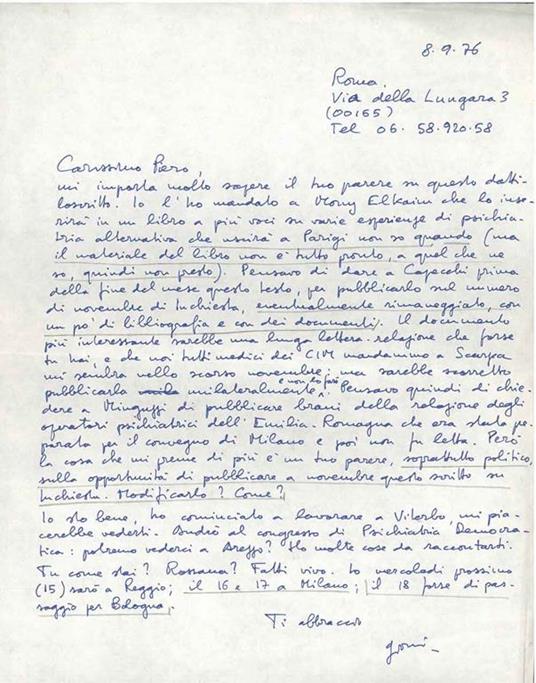 8.9.76
Roma,
Via della Lungara 3
(00165)
Tel 06. 58.920.58
Carissimo Piero,
mi importa molto sapere il tuo parere su questo datti-
loscritto. Io l'ho mandato a Mony Elkaim che lo inse-
rirà in un libro a più voci su varie esperienze di psichia-
tria alternativa che uscirà a Parigi non so quando (ma
il materiale del libro non è tutto pronto, a quel che ne
so, quindi non presto). Pensavo di dare a Capecchi prima
della fine del mese questo testo, per pubblicarlo sul numero
di novembre di Inchiesta, eventualmente rimaneggiato, con
un po' di bibliografia e con dei documenti. Il documento
più interessante sarebbe una lunga lettera-relazione che forse
tu hai, e che noi tutti medici dei CIM mandammo a Scarpa
mi sembra nello scorso novembre; ma sarebbe scorretto
pubblicarla unilateralmente e non lo farò. Pensavo quindi di chie-
dere a Minguzzi di pubblicare brani della relazione degli
operatori psichiatrici dell'Emilia-Romagna che era stata pre-
parata per il convegno di Milano e poi non fu letta. Però
la cosa che mi preme di più è un tuo parere, soprattutto politico,
sulla opportunità di pubblicare a novembre questo scritto su
Inchiesta. Modificarlo? Come?
Io sto bene, ho cominciato a lavorare a Viterbo, mi pia-
cerebbe vederti. Andrò al congresso di Psichiatria Democra-
tica: potremo vederci a Arezzo? Ho molte cose da raccontarti.
Tu come stai? Rossana? Fatti vivo. Io mercoledì prossimo
(15) sarò a Reggio; il 16 e 17 a Milano; il 18 forse di pas-
saggio per Bologna.
Ti abbraccio